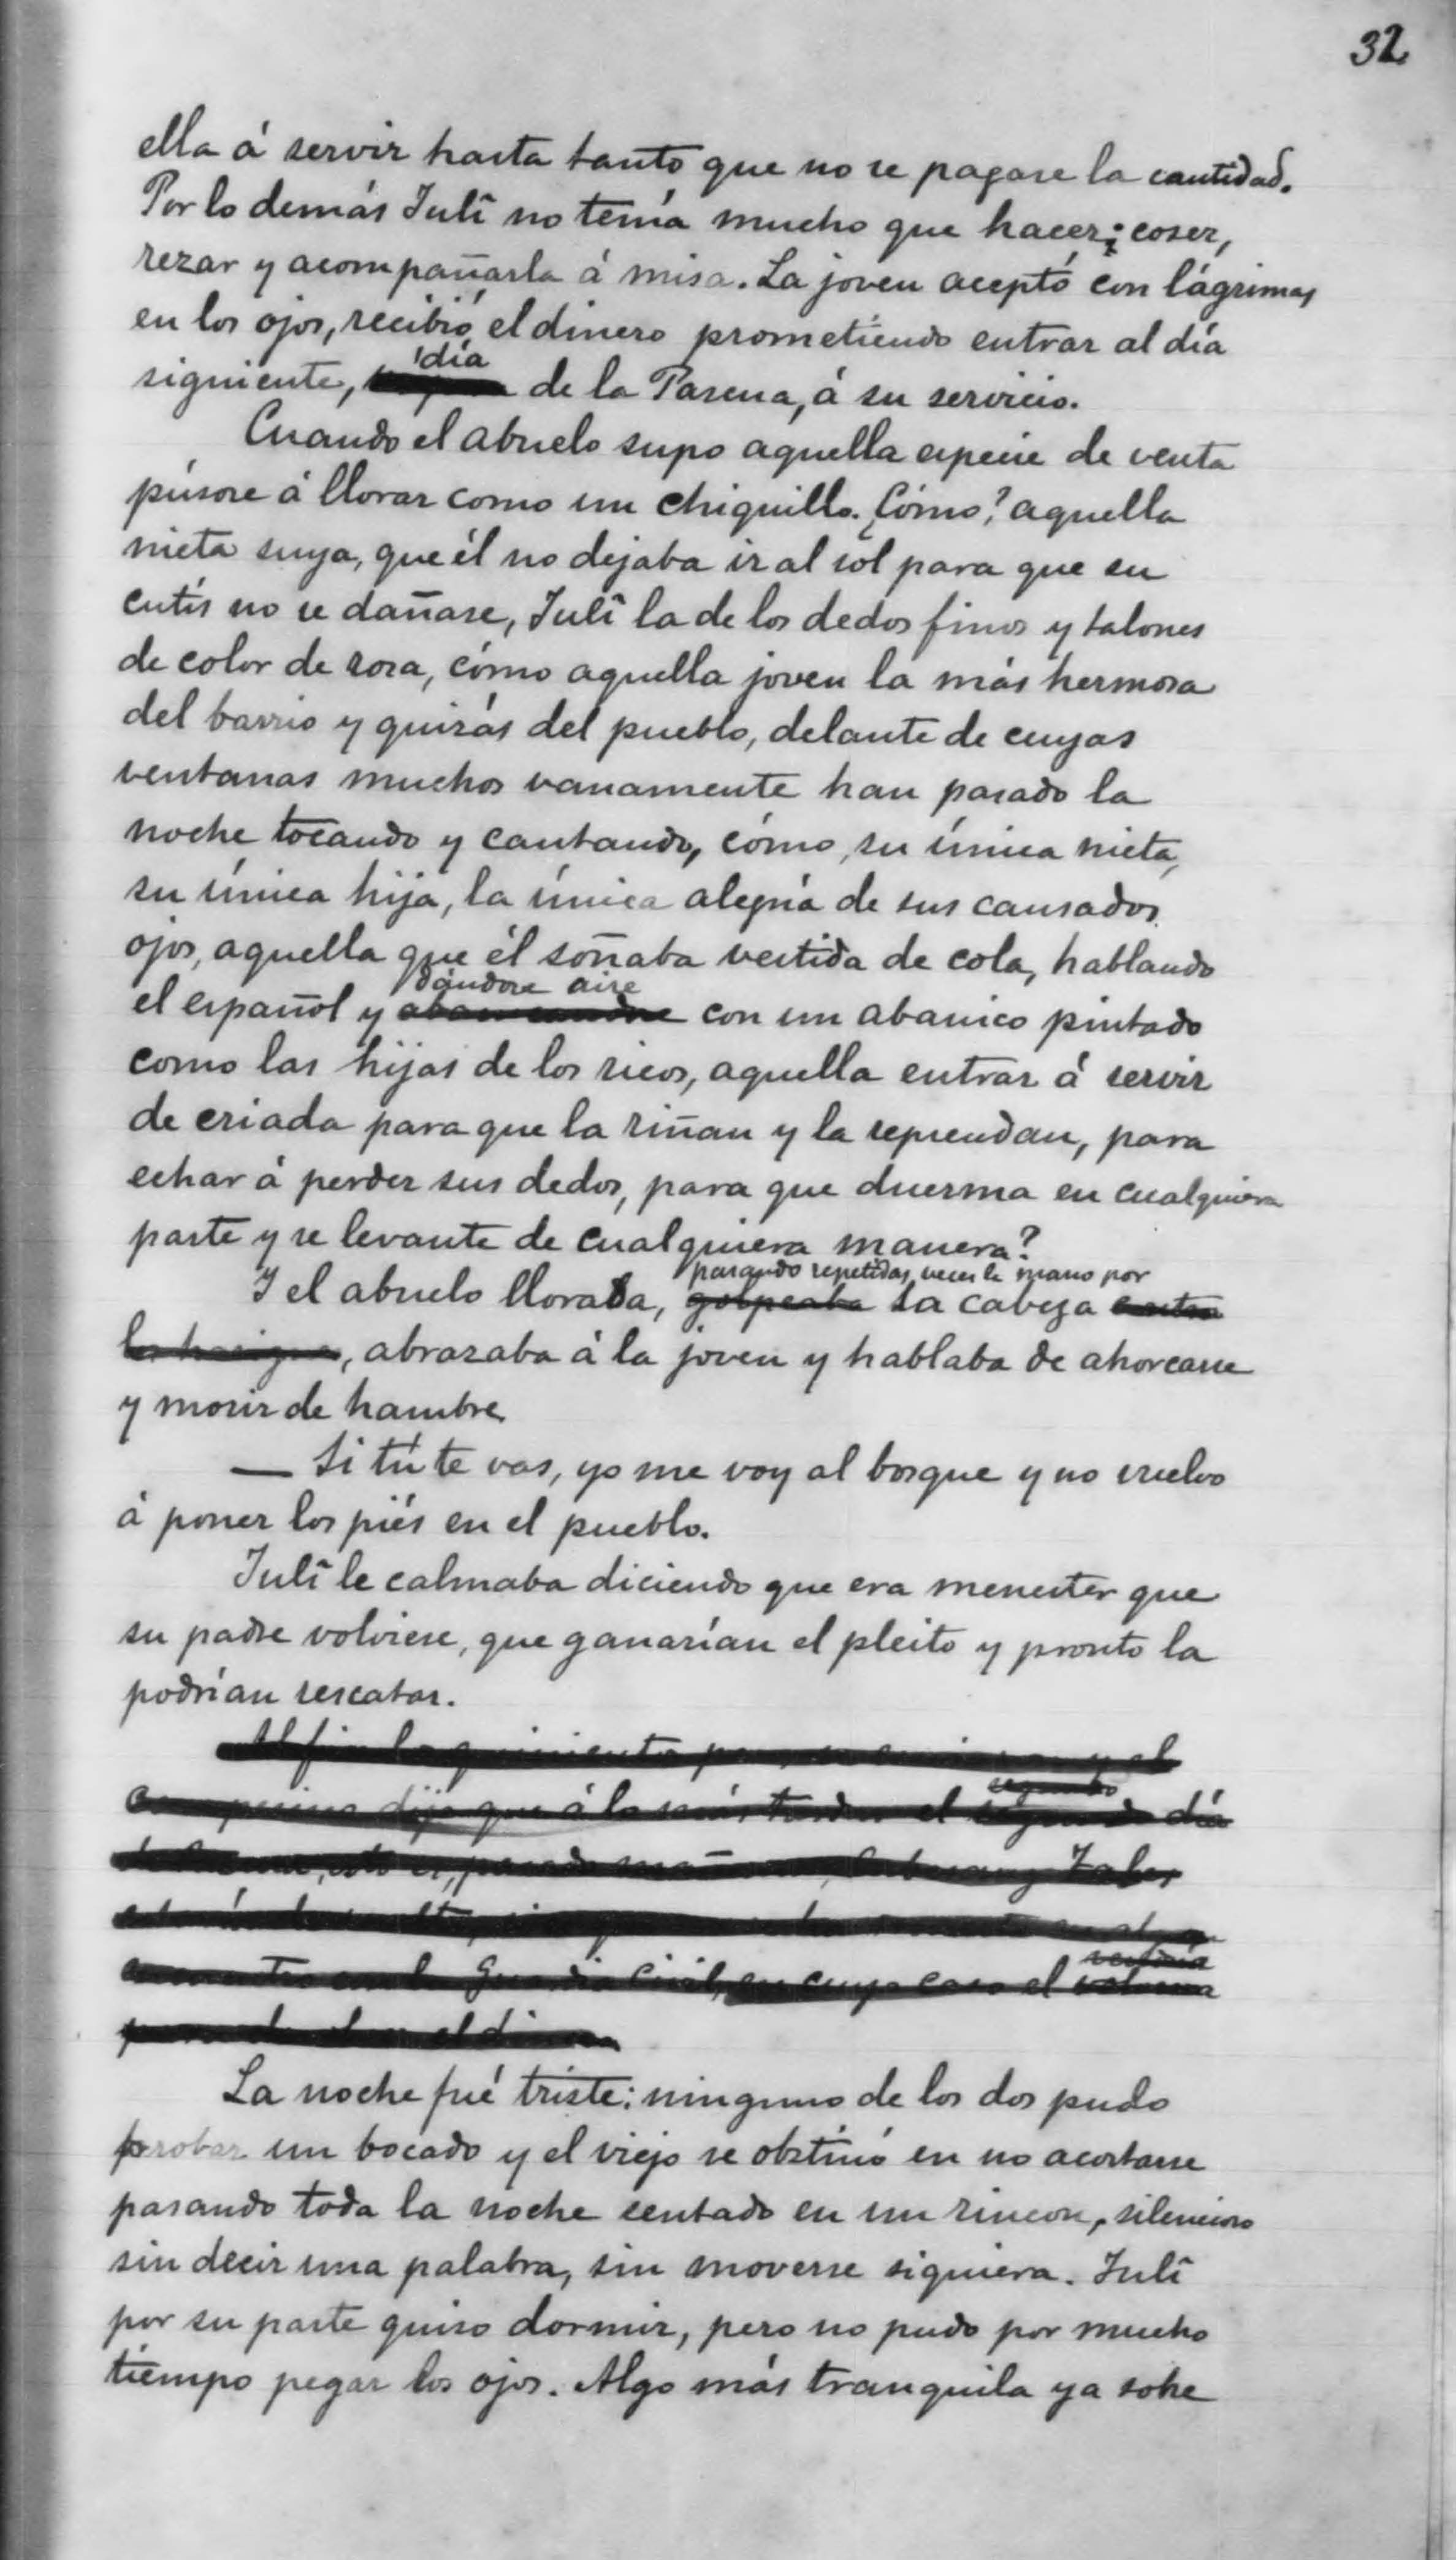 32
ella á servir hasta tanto que no se pagase la cantidad.
Por lo demás Julî no tenía mucho que hacer: coser,
rezar y acompañarla á misa. La joven aceptó con lágrimas
en los ojos, recibió el dinero prometiendo entrar al día
día
siguiente, de la Pascua, á su servicio.
Cuando el abuelo supo aquella especie de venta
púsose á llorar como un chiquillo. ¿Cómo? aquella
nieta suya, que él no dejaba ir al sol para que su
cutis no se dañase, Julî la de los dedos finos y talones
de color de rosa, cómo aquella joven la más hermosa
del barrio y quizás del pueblo, delante de cuyas
ventanas muchos vanamente han pasado la
noche tocando y cantando, cómo, su única nieta,
su única hija, la única alegría de sus cansados
ojos, aquella que él soñaba vestida de cola, hablando
dándose aire
el español y con un abanico pintado
como las hijas de los ricos, aquella entrar á servir
de criada para que la riñan y la reprendan, para
echar á perder sus dedos, para que duerma en cualquiera
parte y se levante de cualquiera manera?
pasando repetidas veces la mano por
Y el abuelo lloraba, golpeaba la cabeza contra
, abrazaba á la joven y hablaba de ahorcarse
y morir de hambre.
— Si tú te vas, yo me voy al bosque y no vuelvo
á poner los piés en el pueblo.
Julî le calmaba diciendo que era menester que
su padre volviese, que ganarían el pleito y pronto la
podrían rescatar.
Al fin y el
dijo que á lo más tardar el día
segundo
esto es, pasado Tales
Guardia Civil, en cuyo caso el
La noche fué triste: ninguno de los dos pudo
probar un bocado y el viejo se obstinó en no acostarse
pasando toda la noche sentado en un rincon, silencioso
sin decir una palabra, sin moverse siquiera. Julî
por su parte quiso dormir, pero no pudo por mucho
tiempo pegar los ojos. Algo más tranquila ya sobre